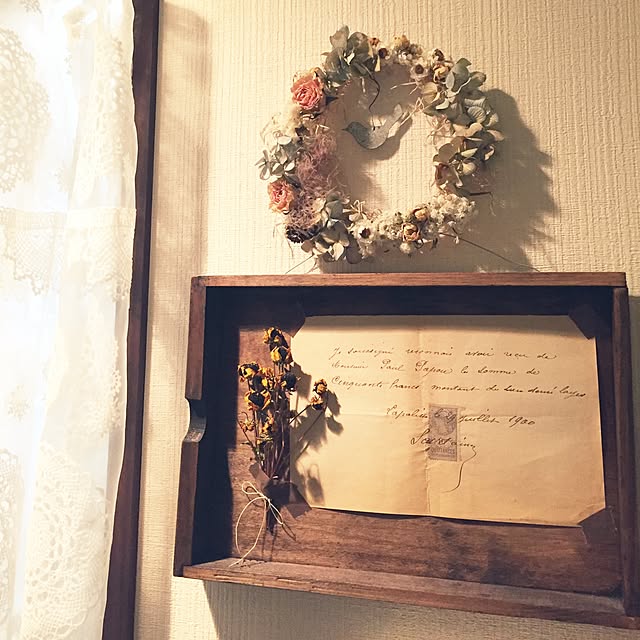 Je soussigné reconnais avoir reçu de
Monsieur Paul Papon la somme de
Cinquante francs montant de
Lapalisse juillet 1900